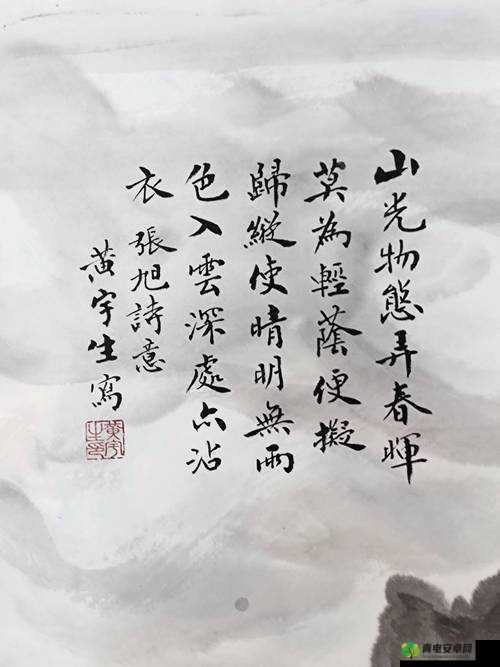 山光物態弄春暉
莫為輕蔭便擬
歸縱使晴明無雨
色入雲深處亦沾
衣 張旭詩意
黃宇生寫
黃宇生印
青电安卓网